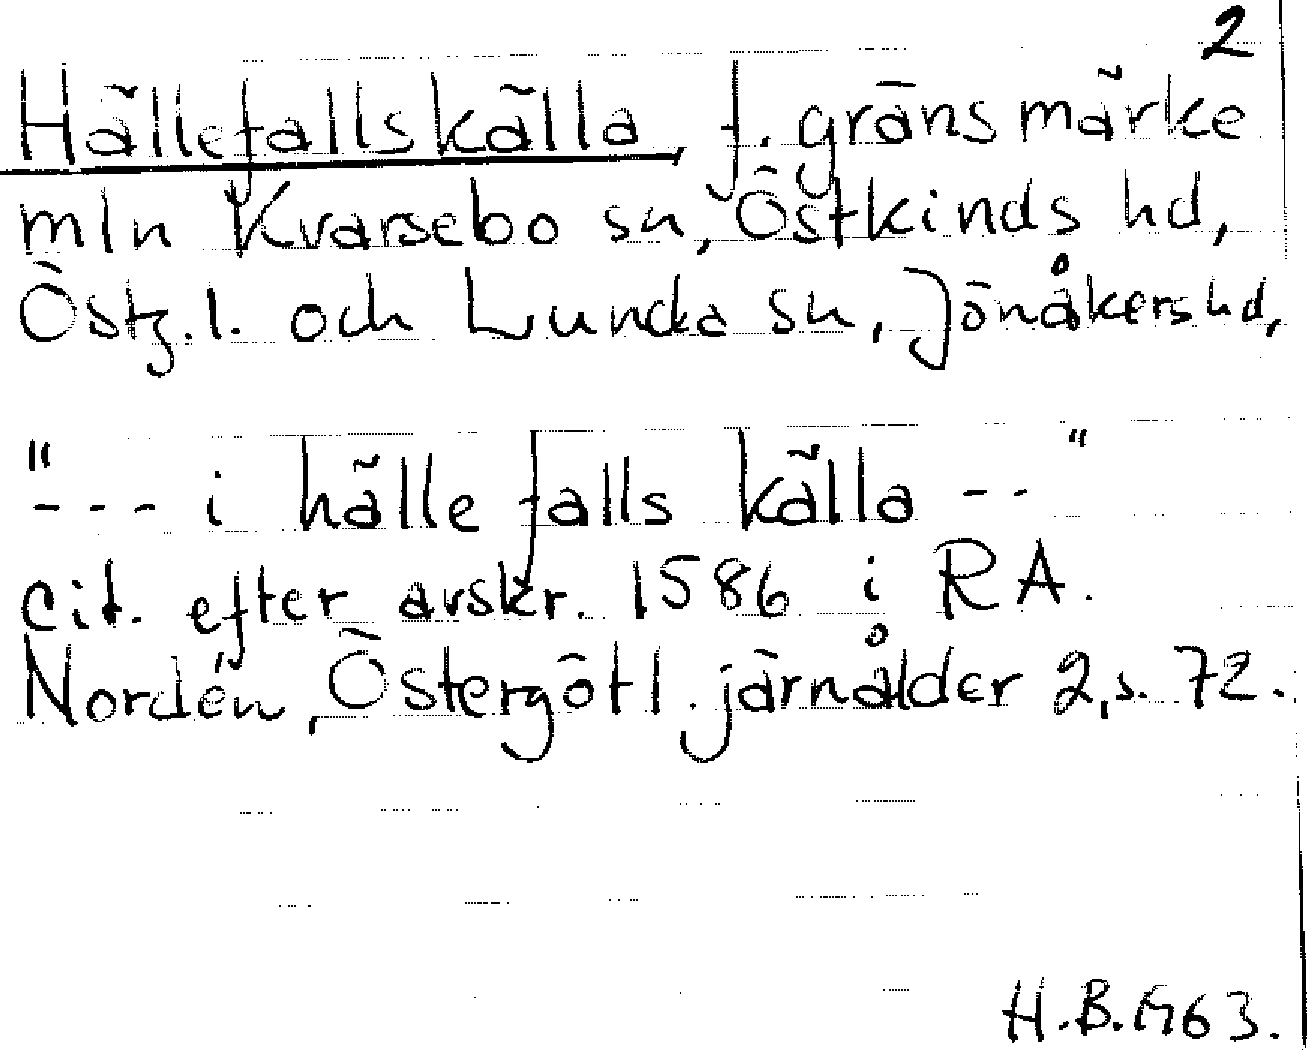 2
Hällefallskälla f. gränsmärke
mln Kvarsebo sn, Östkinds hd,
Östg.l. och Lunda sn, Jönåkers hd,
"--- i hälle falls källa --"
cit. efter avskr. 1586 i RA.
Nordén, Östergötl. järnålder 2, s. 72.
H.B. 1963.